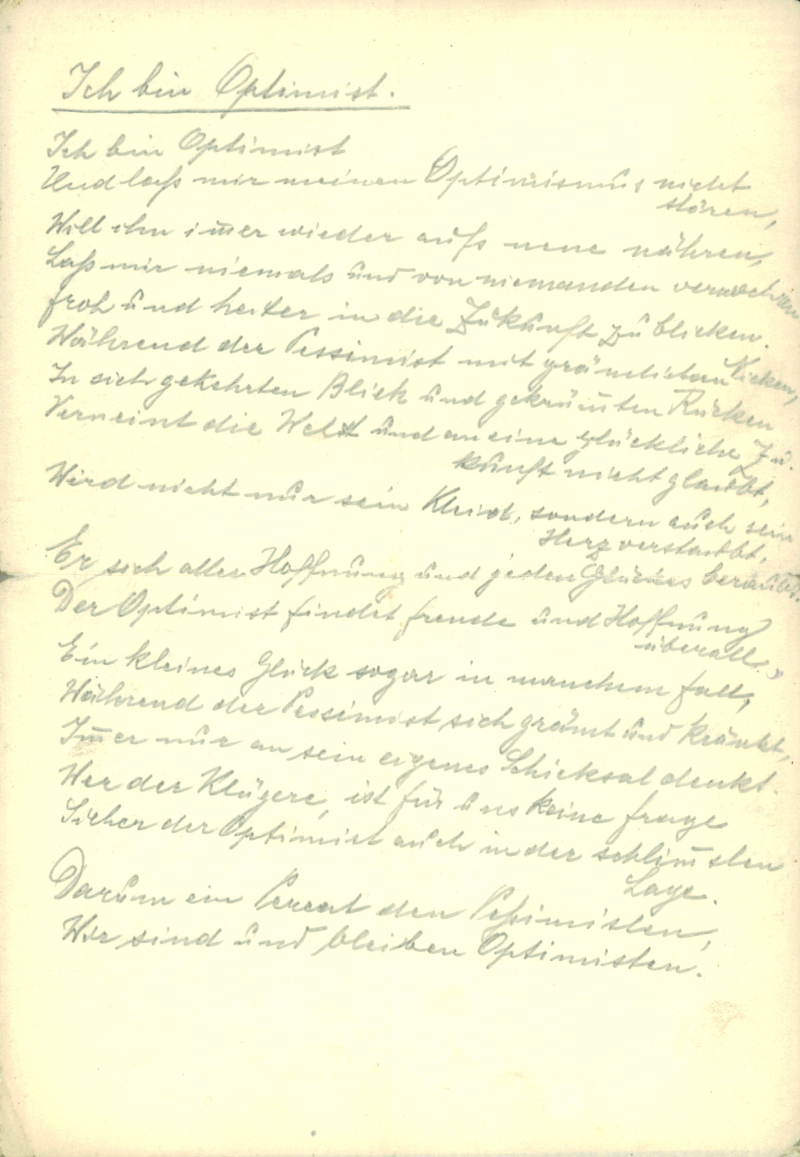 Ich bin Optimist.
Ich bin Optimist
Und laß mir meinen Optimismus nicht
stören,
Will ihn im̅er wieder aufs neue nähren,
Laß mir niemals und von niemanden verwehren
froh und heiter in die Zukunft zu blicken.
Während der Pessimist mit grämlichen Nicken,
In sich gekehrten Blick und gekrüm̅ten Rücken
Verneint die Welt und an eine glückliche Zu-
kunft nicht glaubt,
Wird nicht nur sein Kleid, sondern auch sein
Herz verstaubt,
Er sich aller Hoffnung und jeden Glückes beraubt.
Der Optimist findet freude und Hoffnung
überall,
Ein kleines Glück sogar in manchem fall,
Während der Pessimist sich grämt und kränkt,
Im̅er nur an sein eigenes Schicksal denkt.
Wer der Klügere, ist für uns keine frage
Sicher der Optimist auch in der schlim̅sten
Lage.
Darum ein Pereat den Peßimisten,
Wir sind und bleiben Optimisten.